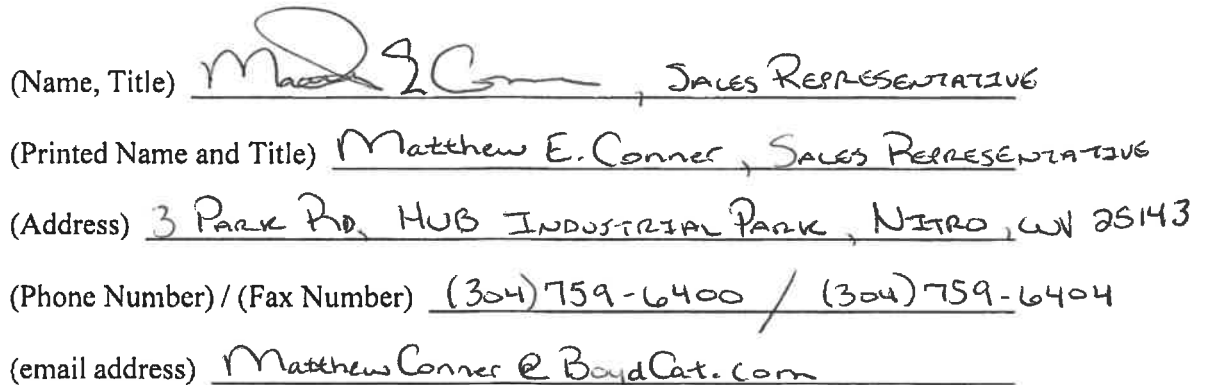 (Name, Title) Matthew E Conner, Sales Representative
(Printed Name and Title) Matthew E. Conner, Sales Representative
(Address) 3 Park Rd, Hub Industrial Park, Nitro, WV 25143
(Phone Number) / (Fax Number) (304) 759-6400 / (304) 759-6404
(email address) MatthewConner@BoydCat.com